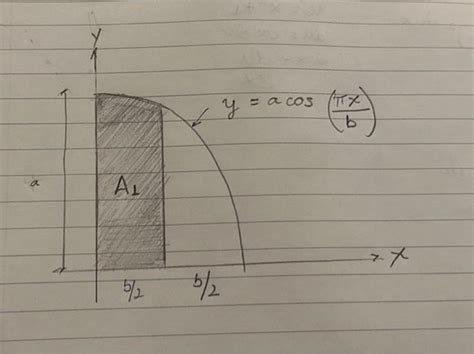 y
y = a cos (πx/b)
a
A1
x
b/2 b/2